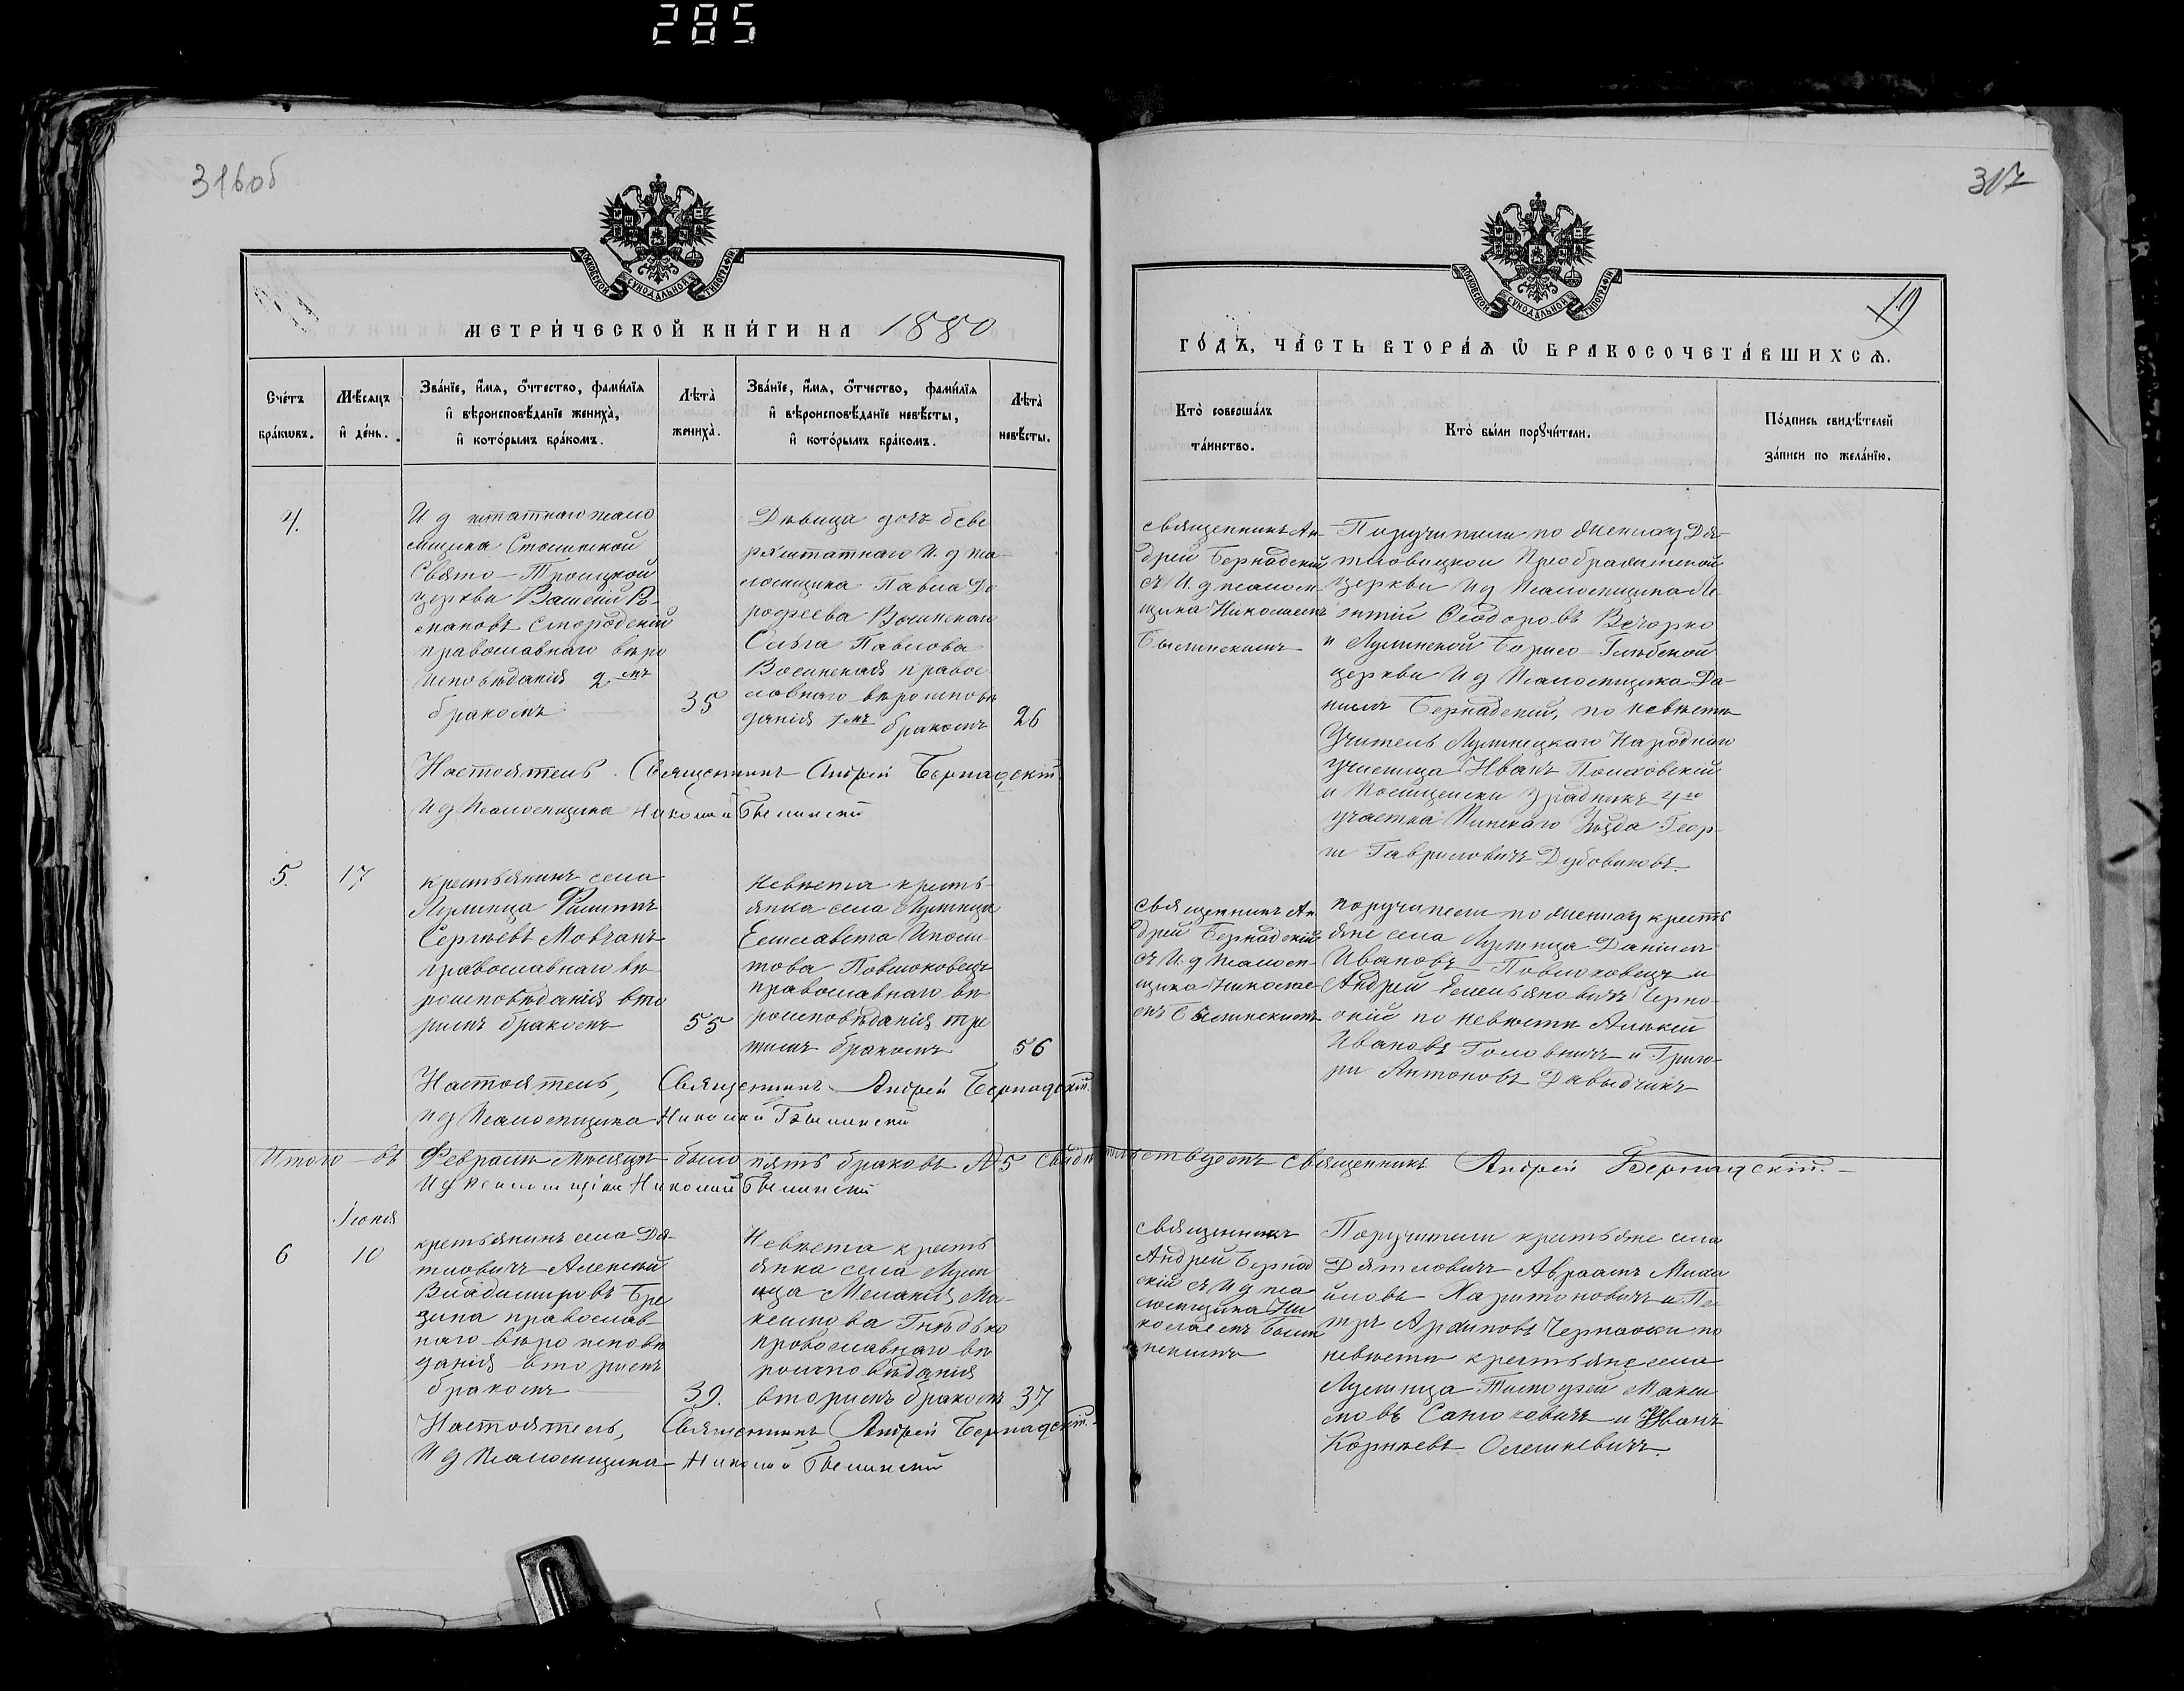 285
316об
МОСКОВСКОЙ СѴНОДАЛЬНОЙ ТИПОГРАФІИ
МЕТРИ́ЧЕСКОЙ КНИ́ГИ НА 1880
Сче́тъ бра́кѡвъ.
Мѣ́сяцъ и҆ де́нь.
Зва́нїе, и҆́мя, о҆́тчество, фами́лїя
и҆ вѣроисповѣ́данїе жениха̀,
и҆ кото́рымъ бра́комъ.
Лѣ́та̀ жениха̀.
Зва́нїе, и҆́мя, о҆́тчество, фами́лїя
и҆ вѣроисповѣ́данїе невѣ́сты,
и҆ кото́рымъ бра́комъ.
Лѣ́та̀ невѣ́сты.
4.
И д штатнаго псало
мщика Столинской
Свято-Троицкой
церкви Василій Ро-
мановъ Смородскій
православнаго вѣро
исповѣданія 2мъ
бракомъ
35
Дѣвица дочь б све
рхштатнаго И. д пса-
ломщика Павла До
рофеева Волинскаго
Ольга Павлова
Волинская правос
ловнаго вѣроисповѣ
данія 1мъ бракомъ
26
Настоятель Священникъ Андрей Бернадскій.
И д Псаломщика Николай Былинскій
5.
17
крестьянинъ села
Лулинца Филиппъ
Сергѣевъ Мовчанъ
православнаго вѣ-
роисповѣданія вто
рымъ бракомъ
55
Невѣста кресть-
янка села Лулинца
Елисавета Иполи-
това Повлюковецъ
православнаго вѣ
роисповѣданія тре
тимъ бракомъ
56
Настоятель, Священникъ Андрей Бернадскій.
И д Псаломщика Николай Былинскій
Итого въ Февралѣ мѣсяцѣ было пять браковъ № 5 свидѣтельствуемъ священникъ Андрей Бернадскій.
И д Псаломщика Николай Былинскій
Іюня
6
10
крестьянинъ села Дя-
тловичъ Алексѣй
Владимировъ Бре
зина православ-
наго вѣро исповѣ
данія вторымъ
бракомъ
39.
Невѣста кресть
янка села Лулин
ца Меланія Ма-
ксимова Гнѣдько
провославнаго вѣ
роисповѣданія
вторымъ бракомъ
37
Настоятель, Священникъ Андрей Бернадскій.
И д Псаломщика Николай Былинскій
317
МОСКОВСКОЙ СѴНОДАЛЬНОЙ ТИПОГРАФІИ
19
ГО́ДЪ, ЧА́СТЬ ВТОРА́Я Ѡ҆ БРАКОСОЧЕТА́ВШИХСЯ.
Кто̀ соверша́лъ та́инство.
Кто̀ бы́ли порꙋчи́тели.
По́дпись свидѣ́телей за́писи по жела́нїю.
священникъ Ан-
дрей Бернадскій
съ И. д псалом-
щика Николаемъ
Былинскимъ
Поручители по жениху Дя-
тловицкой Преображенской
церкви И д Псаломщика
Ѳеодоровъ Вечорко
и Лулинской Борисо-Глѣбской
церкви И д Псаломщика Да-
ніилъ Бернадскій, по невѣстѣ
Учитель Лулинецкаго Народнаго
училища Иванъ
и Полицейскій урядникъ 4го
участка Пинскаго Уѣзда Геор-
гій Гавриловичъ Дубовиковъ.
священникъ Ан
дрей Бернадскій
съ И. д псалом-
щика Николае-
мъ Былинскимъ
поручители по жениху кресть
яне села Лулинца Даніилъ
Ивановъ Повлюковецъ и
Андрей Емельяновичъ Черно-
окій по невѣстѣ Алексѣй
Ивановъ Головничъ и Григо-
рій Антоновъ Давыдчикъ
священникъ
Андрей Бернад
скій съ И д пса
ломщика Ни
колаемъ Былин
нскимъ
Поручители крестьяне села
Дятловичъ Авраамъ Миха
йловъ Харитоновичъ и Пе
тръ Архиповъ Черноокій по
невѣстѣ крестьяне села
Лулинца Тимофей Макси
мовъ Санюковичъ и Иванъ
Корнѣевъ Олешкевичъ.